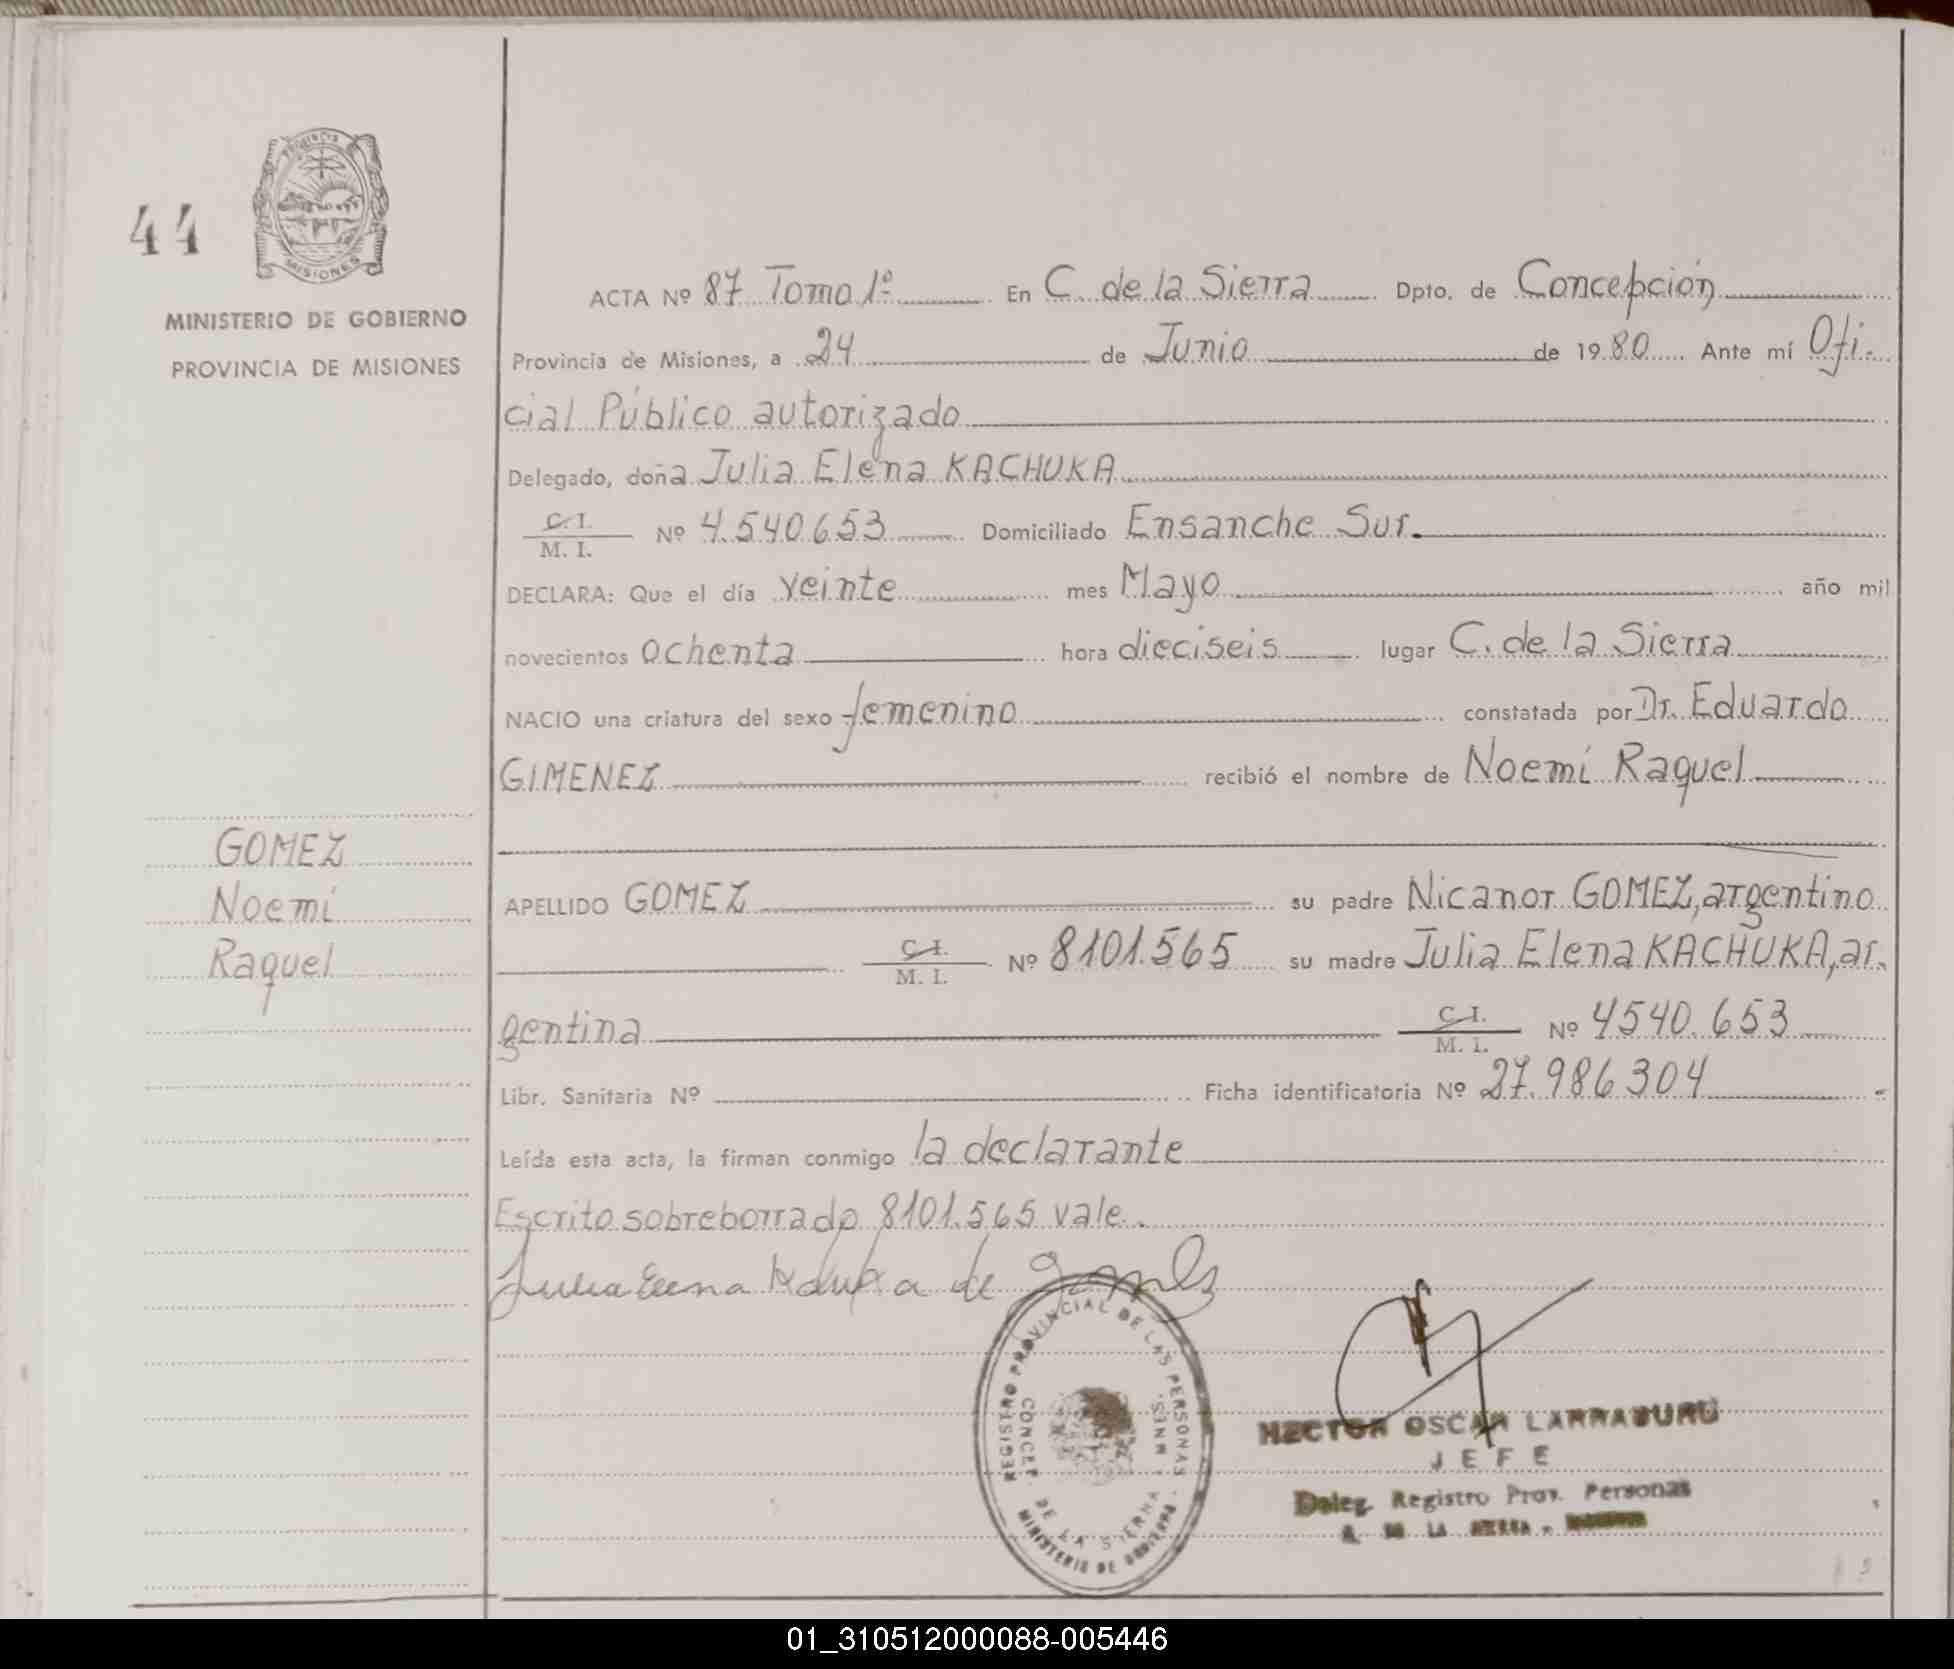 44
PROVINCIA
MISIONES
MINISTERIO DE GOBIERNO
PROVINCIA DE MISIONES
GOMEZ
Noemí
Raquel
ACTA Nº 87 Tomo 1º En C. de la Sierra Dpto. de Concepción
Provincia de Misiones, a 24 de Junio de 1980 Ante mí Ofi-
cial Público autorizado
Delegado, doña Julia Elena KACHUKA
C. I.
M. I. Nº 4.540.653 Domiciliado Ensanche Sur.
DECLARA: Que el día veinte mes Mayo año mil
novecientos ochenta hora dieciseis lugar C. de la Sierra
NACIO una criatura del sexo femenino constatada por Dr. Eduardo
GIMENEZ recibió el nombre de Noemí Raquel
APELLIDO GOMEZ su padre Nicanor GOMEZ, argentino
C. I.
M. I. Nº 8101.565 su madre Julia Elena KACHUKA, ar-
gentina C. I.
M. I. Nº 4540.653
Libr. Sanitaria Nº Ficha identificatoria Nº 27.986304
Leída esta acta, la firman conmigo la declarante
Escrito sobreborrado 8101.565 vale.
Julia Elena Kachuka de Gomez
REGISTRO PROVINCIAL DE LAS PERSONAS
CONCEP. DE LA SIERRA MNES.
MINISTERIO DE GOBIERNO
HECTOR OSCAR LARRABURU
JEFE
Deleg. Registro Prov. Personas
C. DE LA SIERRA -
01_310512000088-005446